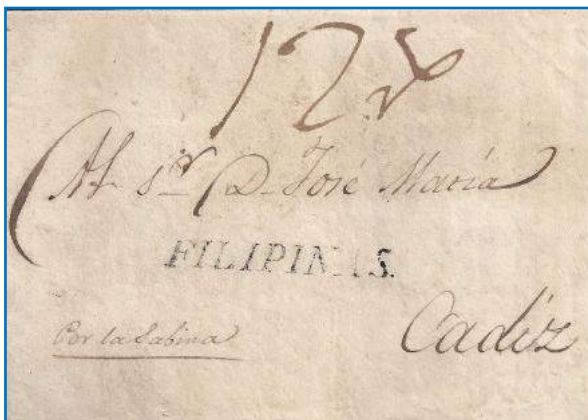 12 r
Al Sr. D. José María
FILIPINAS.
Por la Sabina
Cadiz